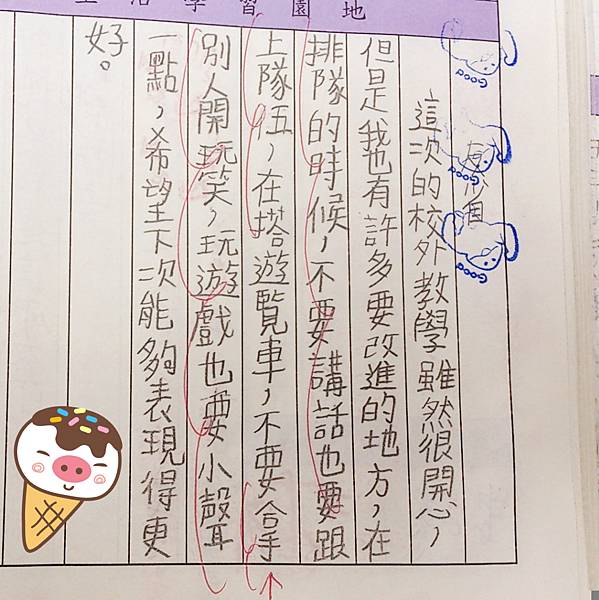 生活學習園地
Good
Good
Good
這次的校外教學雖然很開心，
但是我也有許多要改進的地方，在
排隊的時候，不要講話也要跟
上隊伍，在搭遊覽車，不要拿
別人開玩笑，玩遊戲也要小聲
一點，希望下次能夠表現得更
好。